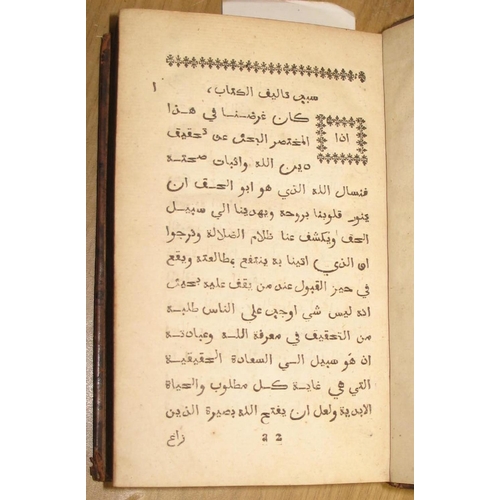 ١
سبب تاليف الكتاب،
اذا كان غرضنا في هذا
المختصر البحث عن تحقيق
دين الله واثبات صحته
فنسال الله الذي هو ابو الحق ان
ينور قلوبنا بروحه ويهدينا الى سبيل
الحق ويكشف عنا ظلام الضلالة ونرجوا
ان الذي اتينا به ينتفع بمطالعته ويقع
في حيز القبول عند من يقف عليه بحيث
انه ليس شي اوجب على الناس طلبه
من التحقيق في معرفة الله وعبادته
ان هو سبيل الى السعادة الحقيقية
التي هي غاية كل مطلوب والحياة
الابدية ولعل ان يفتح الله بصيرة الذين
a 2
زاغ